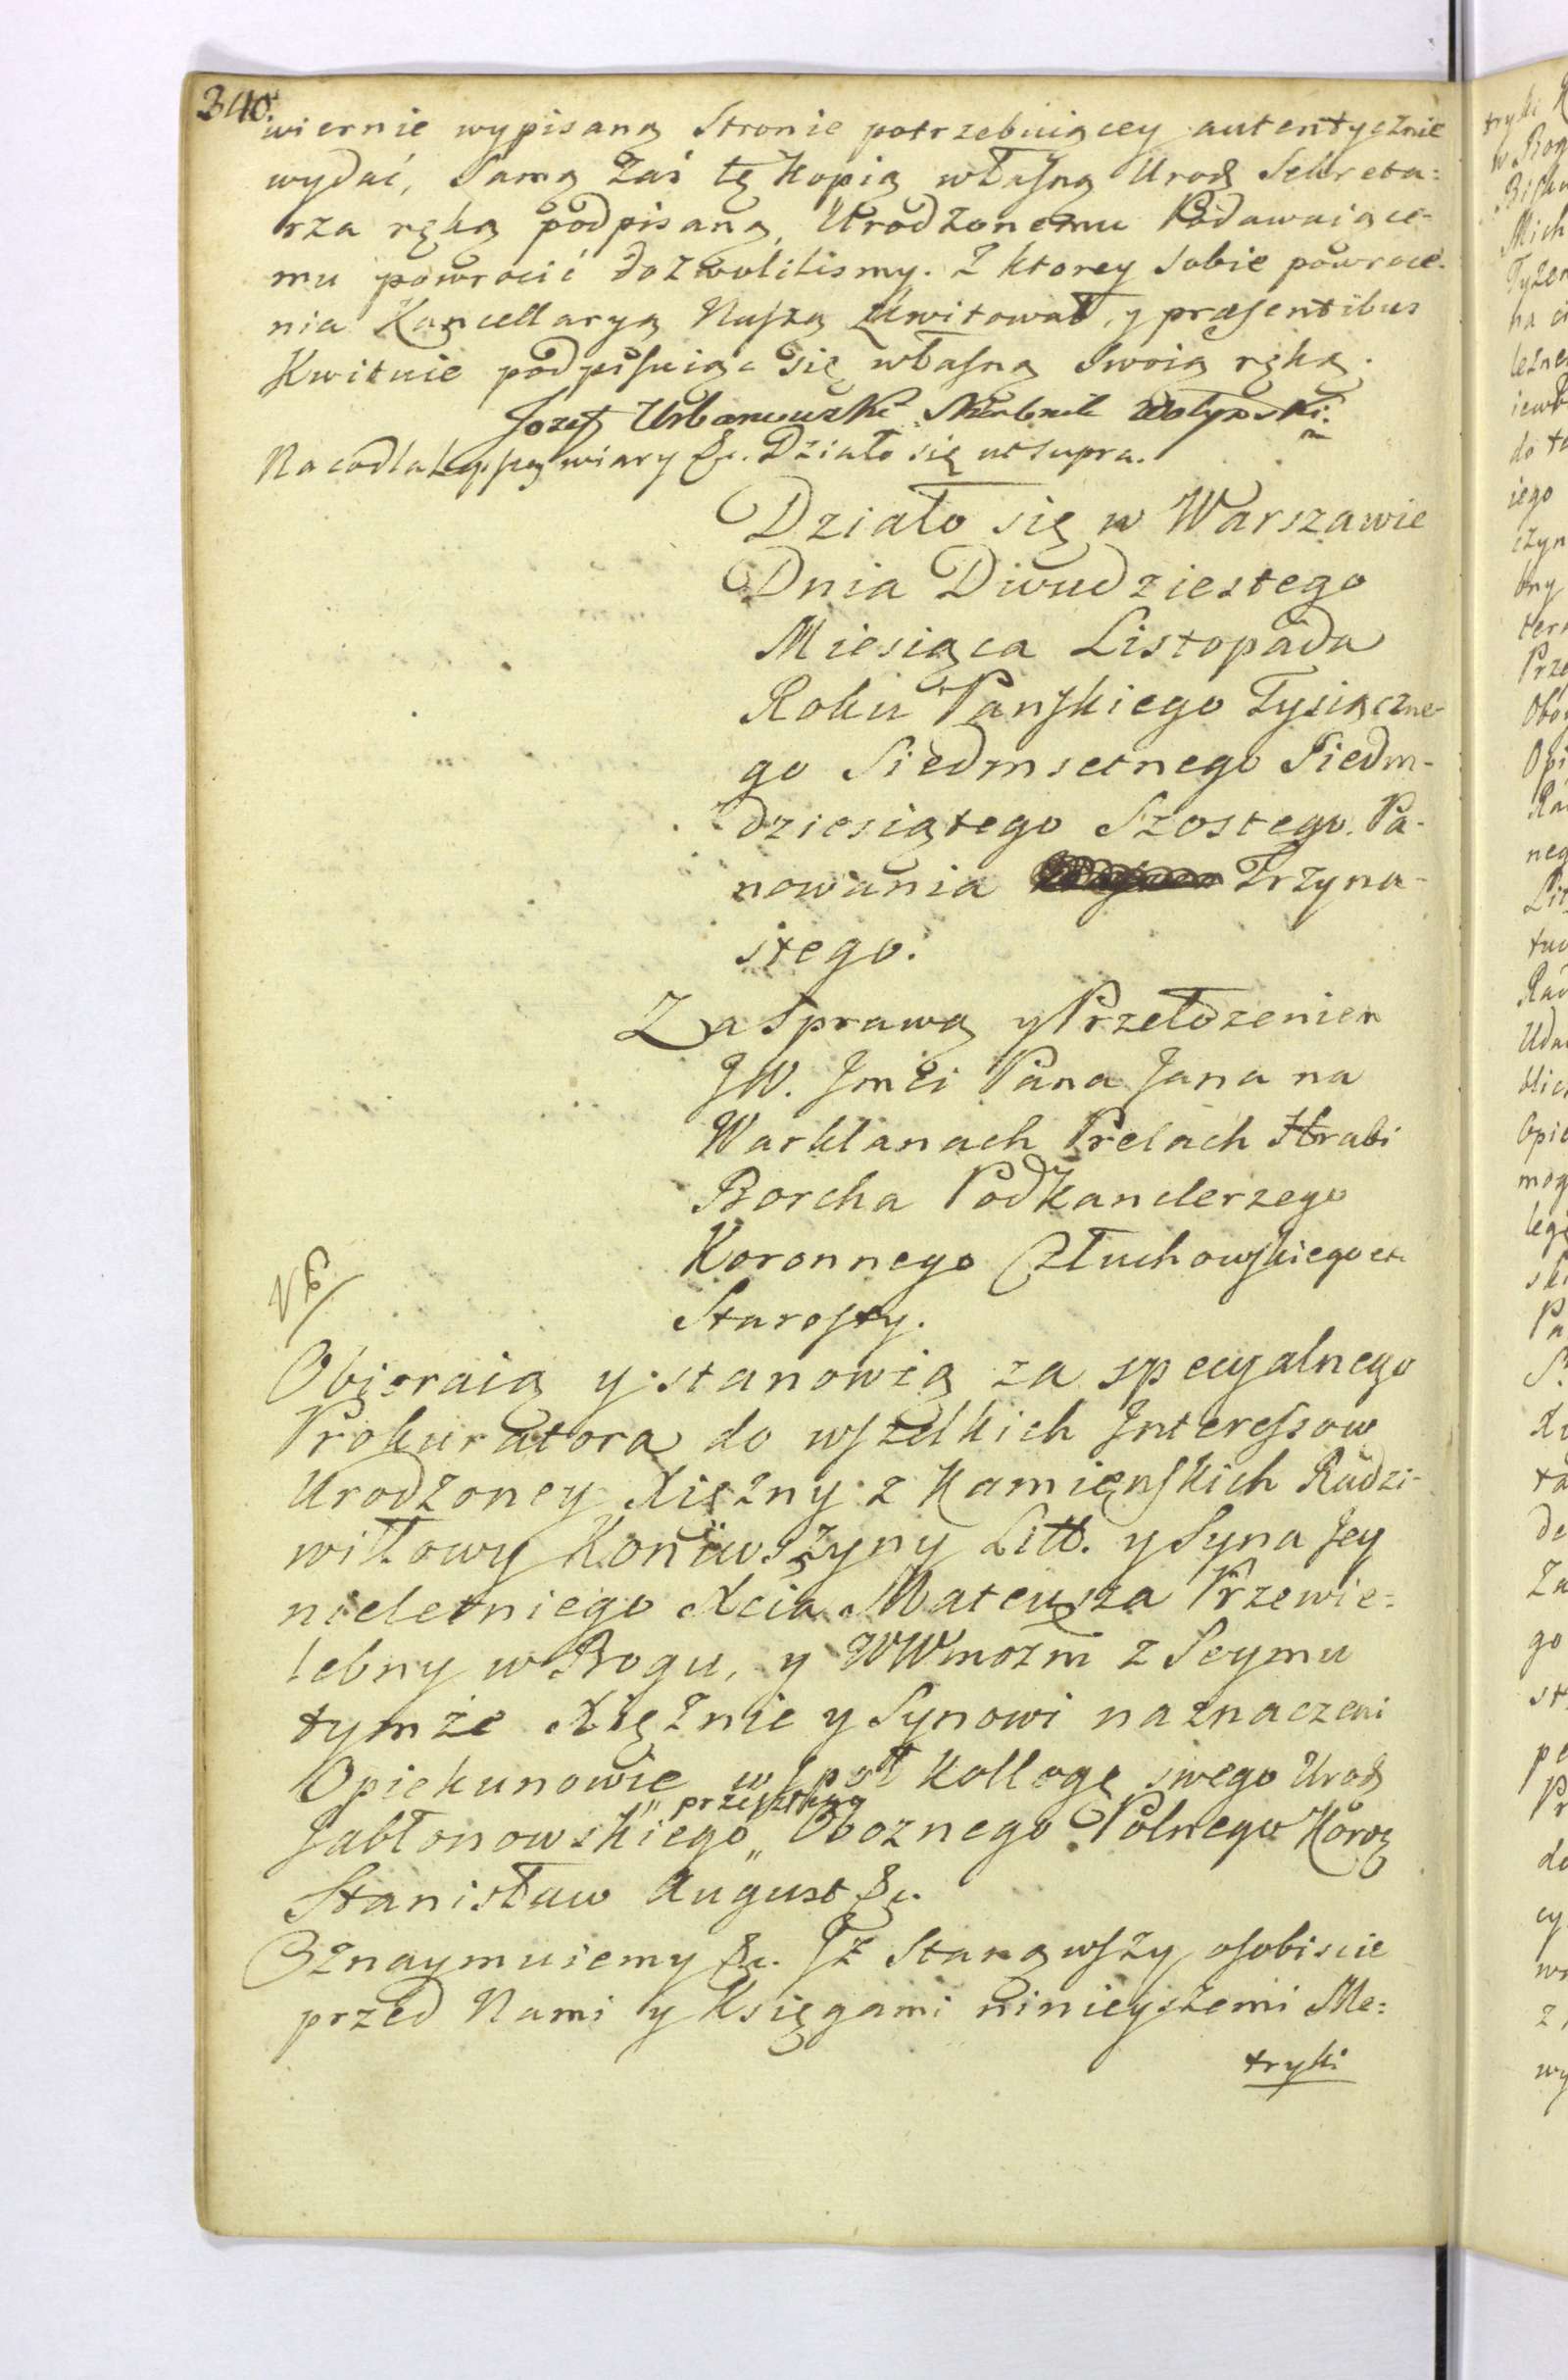 340.
wiernie wypisaną Stronie potrzebuiącey autentycznie
wydać, Samą zaś tę Kopią własną Urodz Sekreta=
rza ręką podpisaną, Urodzonemu Podawaiące-
mu powrocić dozwolilismy. Z ktorey sobie powroce-
nia Kancellaryą Naszą Zkwitował, y præsentibus
Kwituie podpisuiąc się własną swoią ręką.
Jozef Urbanowski Skarbnik Wołyński
Na co dla lepszey wiary &c. Działo się ut supra.
Działo się w Warszawie
Dnia Dwudziestego
Miesiąca Listopada
Roku Panskiego Tysiączne-
go Siedmsetnego Siedm-
dziesiątego Szostego. Pa-
nowania Trzyna-
stego.
Za Sprawą y Przełozeniem
JW. Jmci Pana Jana na
Warklanach Prelach Hrabi
Borcha Podkanclerzego
Koronnego Człuchowskiego etc
Starosty.
Obieraią y stanowią za specyalnego
Prokuratora do wszelkich Interessow
Urodzoney Xięzny z Kamięnskich Radzi-
wiłłowy Koniuszyny Litt. y Syna Jey
nieletniego Xcia Mateusza Przewie=
lebny w Bogu, y WWmozni z Seymu
tymże Xięznie y Synowi naznaczeni
Opiekunowie wspoł Kollegę swego Urodz
przeszłego
Jabłonowskiego „ Oboznego Polnego Koroą
Stanisław August &c.
Oznaymuiemy &c. Jż Stanąwszy osobiscie
przed Nami y Księgami ninieyszemi Me=
tryki